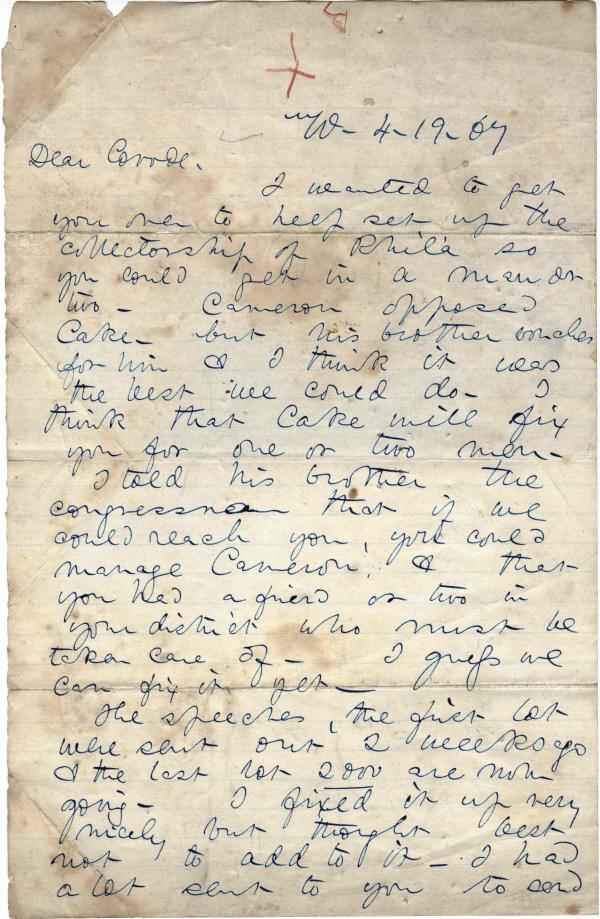 W- 4-19-67
Dear Covode.
I wanted to get
you over to help set up the
collectorship of Phila so
you could get in a man or
two - Cameron opposed
Cake - but his brother vouches
for him & I think it was
the best we could do - I
think that Cake will fix
you for one or two men -
I told his brother the
congressman that if we
could reach you, you could
manage Cameron, & that
you had a frierd or two in
your district who must be
taken care of - I guess we
can fix it yet -
The speeches, the first lot
were sent out 2 weeks ago
& the last lot 2000 are now
going - I fixed it up very
nicely but thought best
not to add to it - I had
a lot sent to you to send